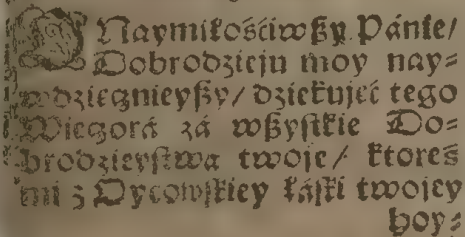 Naymiłośćiwßy Pánie/
Dobrodzieju moy nay=
wdzięcznieyßy/ dziękujęć tego
Wieczorá zá wßyſtkie Do=
brodzieyſtwa twoje/ ktoreś
mi z Oycowſkiey łáſki twojey
hoy=